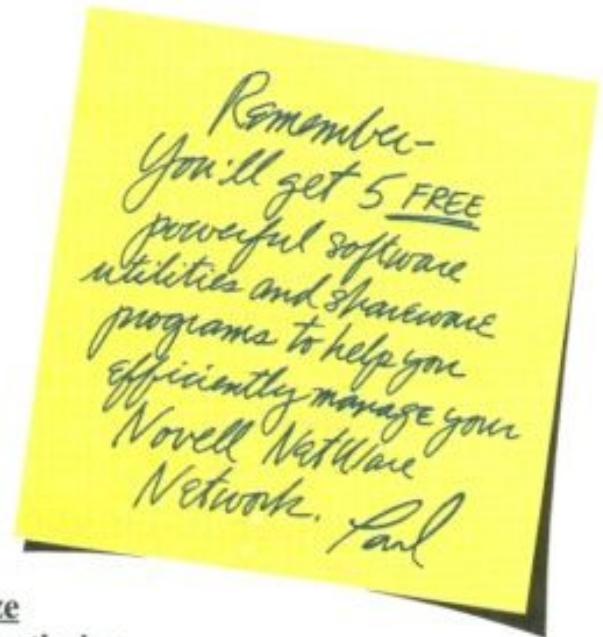 Remember-
You'll get 5 FREE
powerful software
utilities and shareware
programs to help you
efficiently manage your
Novell NetWare
Network. Paul